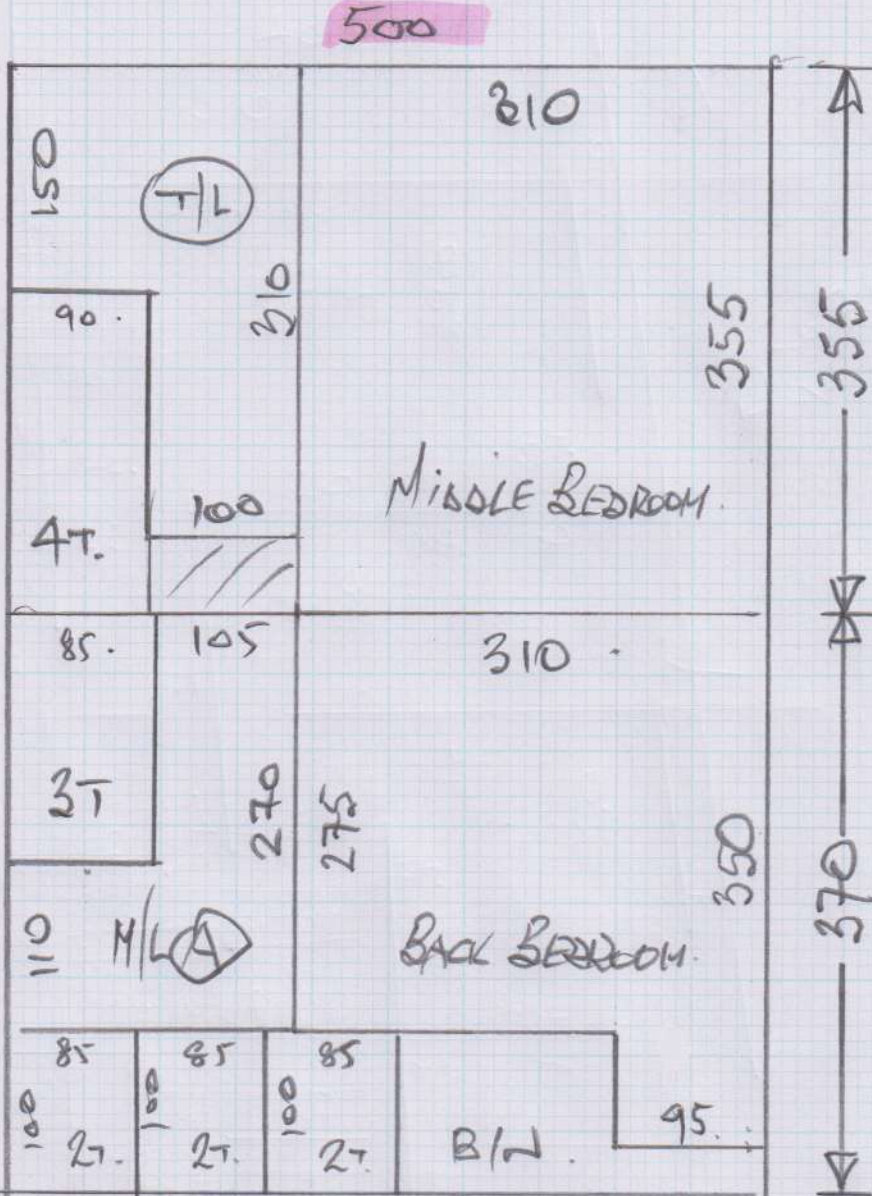 500
310
150
T/L
310
90.
355
355
MIDDLE BEDROOM.
100
4T.
85.
105
310
3T
270
275
350
370
110
M/L A
BACK BEDROOM.
85
85
85
100
100
100
2T.
2T.
2T.
B/W.
95.